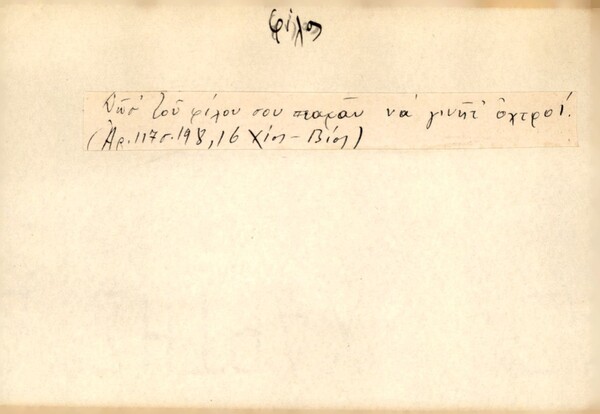 φίλος
Δῶσ' τοῦ φίλου σου παρᾶν νὰ γινῆτ' ὀχτροί.
(Ἀρ. 117 σ. 198, 16 Χίος - Βίος)